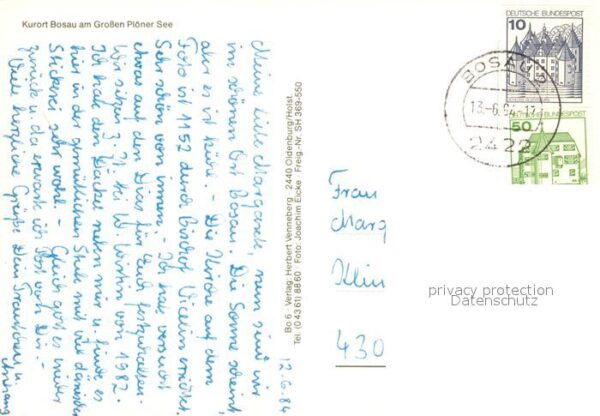 Kurort Bosau am Großen Plöner See
12.6.84
Meine liebe Margaret, nun sind wir
im schönen Ort Bosau. Die Sonne scheint,
aber es ist kühl. - Die Kirche auf dem
Foto ist 1152 durch Bischof Vicelin errichtet.
Sehr schön von innen. - Ich habe versucht
etwas auf den Dias für Euch festzuhalten.
Wir sitzen
Ich habe den Rücken neben mir u. finde es
hier in der gemütlichen Stube mit viel dänischer
Stickerei sehr wohl. - Gleich geht es wieder
zurück u. da erwarte ich Post von Dir. -
Viele herzliche Grüße Dein
Anhang
Bo 6 · Verlag: Herbert Venneberg · 2440 Oldenburg/Holst.
Tel. (0 43 61) 88 60 · Foto: Joachim Eicke · Freig.-Nr. SH 369-550
DEUTSCHE BUNDESPOST
10
DEUTSCHE BUNDESPOST
50
BOSAU
13.-6.84
2422
Frau
Marg
Klin
430
privacy protection
Datenschutz